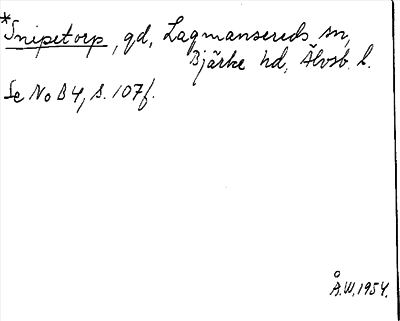 *Snipetorp, gd, Lagmansereds sn,
Bjärke hd, Älvsb. l.
Se No B4, s. 107f.
Å.W. 1954.